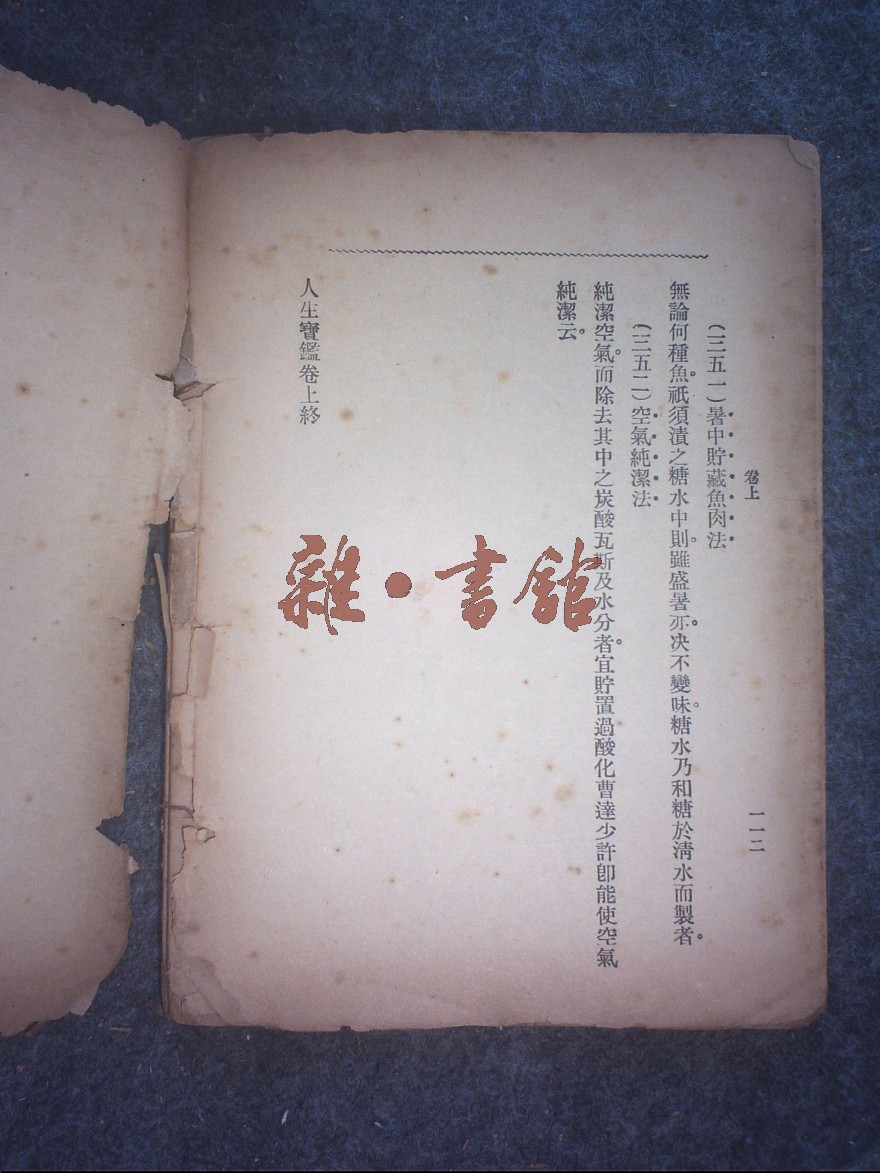 卷上
一一二
(三五一)暑中貯藏魚肉法
無論何種魚。祇須漬之糖水中。則雖盛暑。亦决不變味。糖水乃和糖於淸水而製者。
(三五二)空氣純潔法
純潔空氣。而除去其中之炭酸瓦斯及水分者。宜貯置過酸化曹達少許卽能使空氣
純潔云。
人生寶鑑卷上終
雜·書館